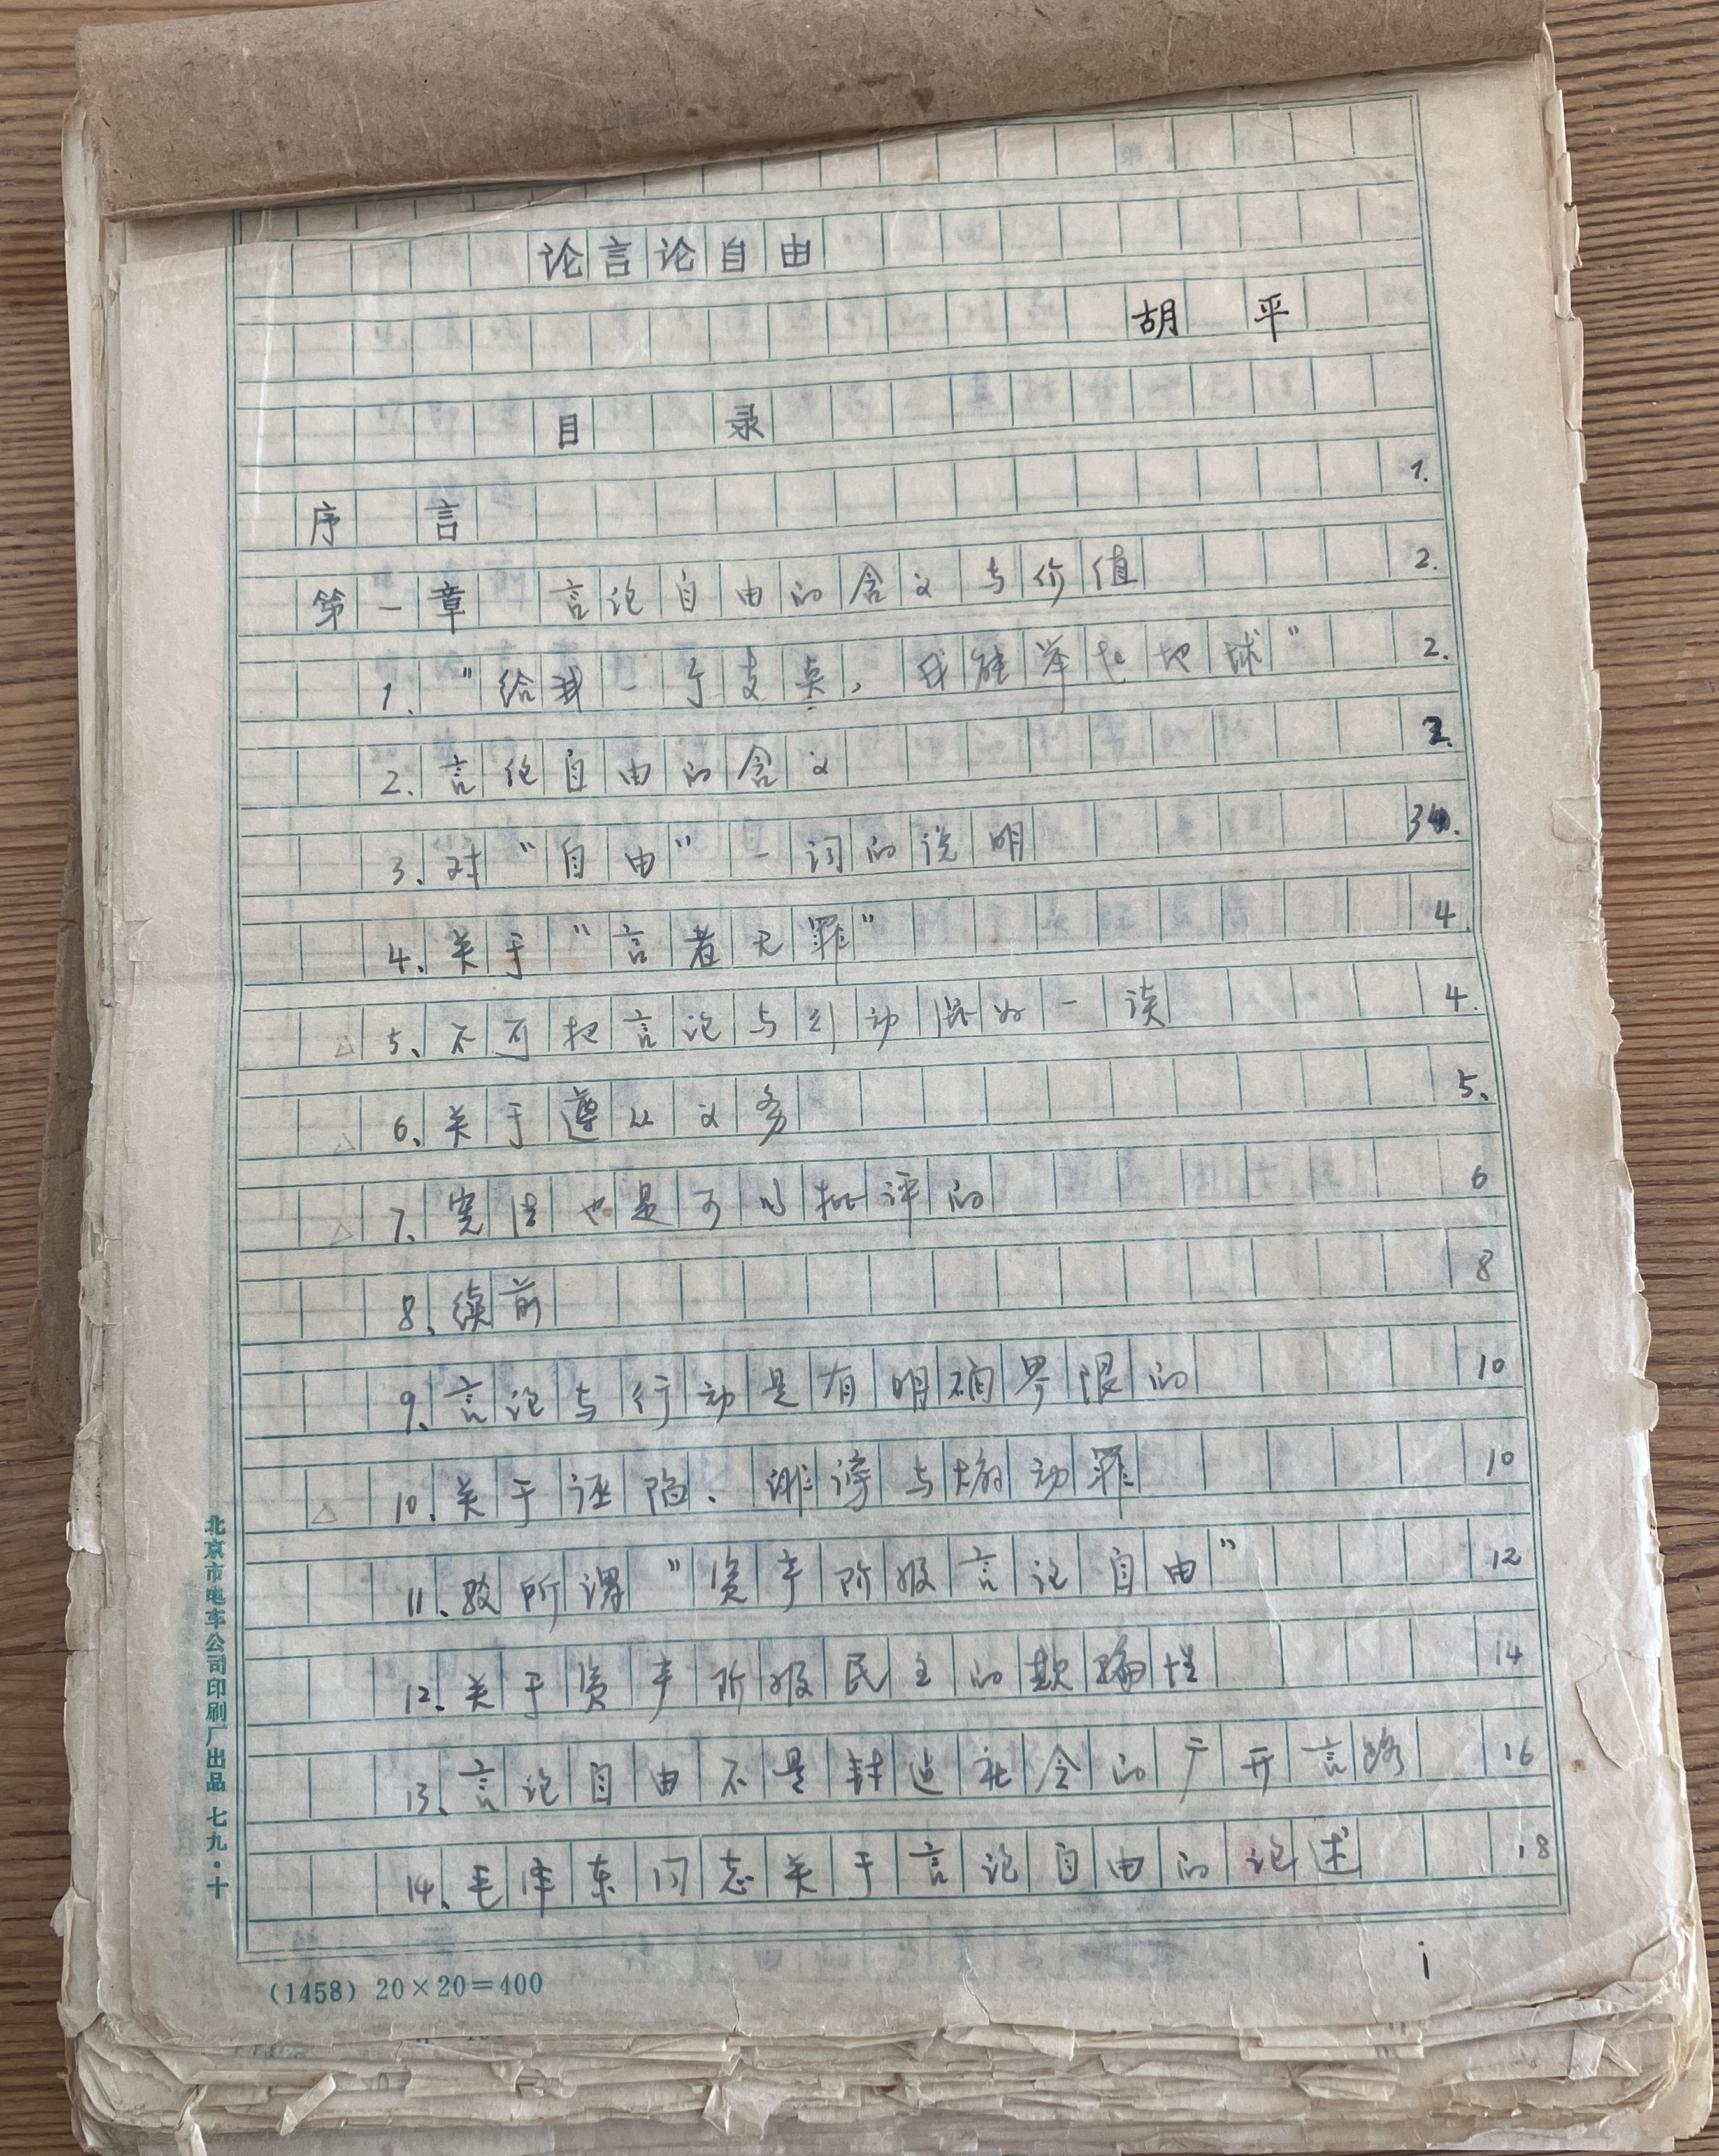 论言论自由
胡 平
目 录
序 言 1.
第一章 言论自由的含义与价值 2.
1. "给我一个支点，我能举起地球" 2.
2. 言论自由的含义 2.
3. 对"自由"一词的说明 3.
4. 关于"言者无罪" 4
△ 5. 不可把言论与行动混为一谈 4.
△ 6. 关于遵从义务 5.
△ 7. 宪法也是可以批评的 6
8. 续前 8
9. 言论与行动是有明确界限的 10
△ 10. 关于诬陷、诽谤与煽动罪 10
11. 驳所谓"资产阶级言论自由" 12
12. 关于资产阶级民主的欺骗性 14
13. 言论自由不是封建社会的广开言路 16
14. 毛泽东同志关于言论自由的论述 18
i
(1458) 20×20=400
北京市电车公司印刷厂出品 七九·十